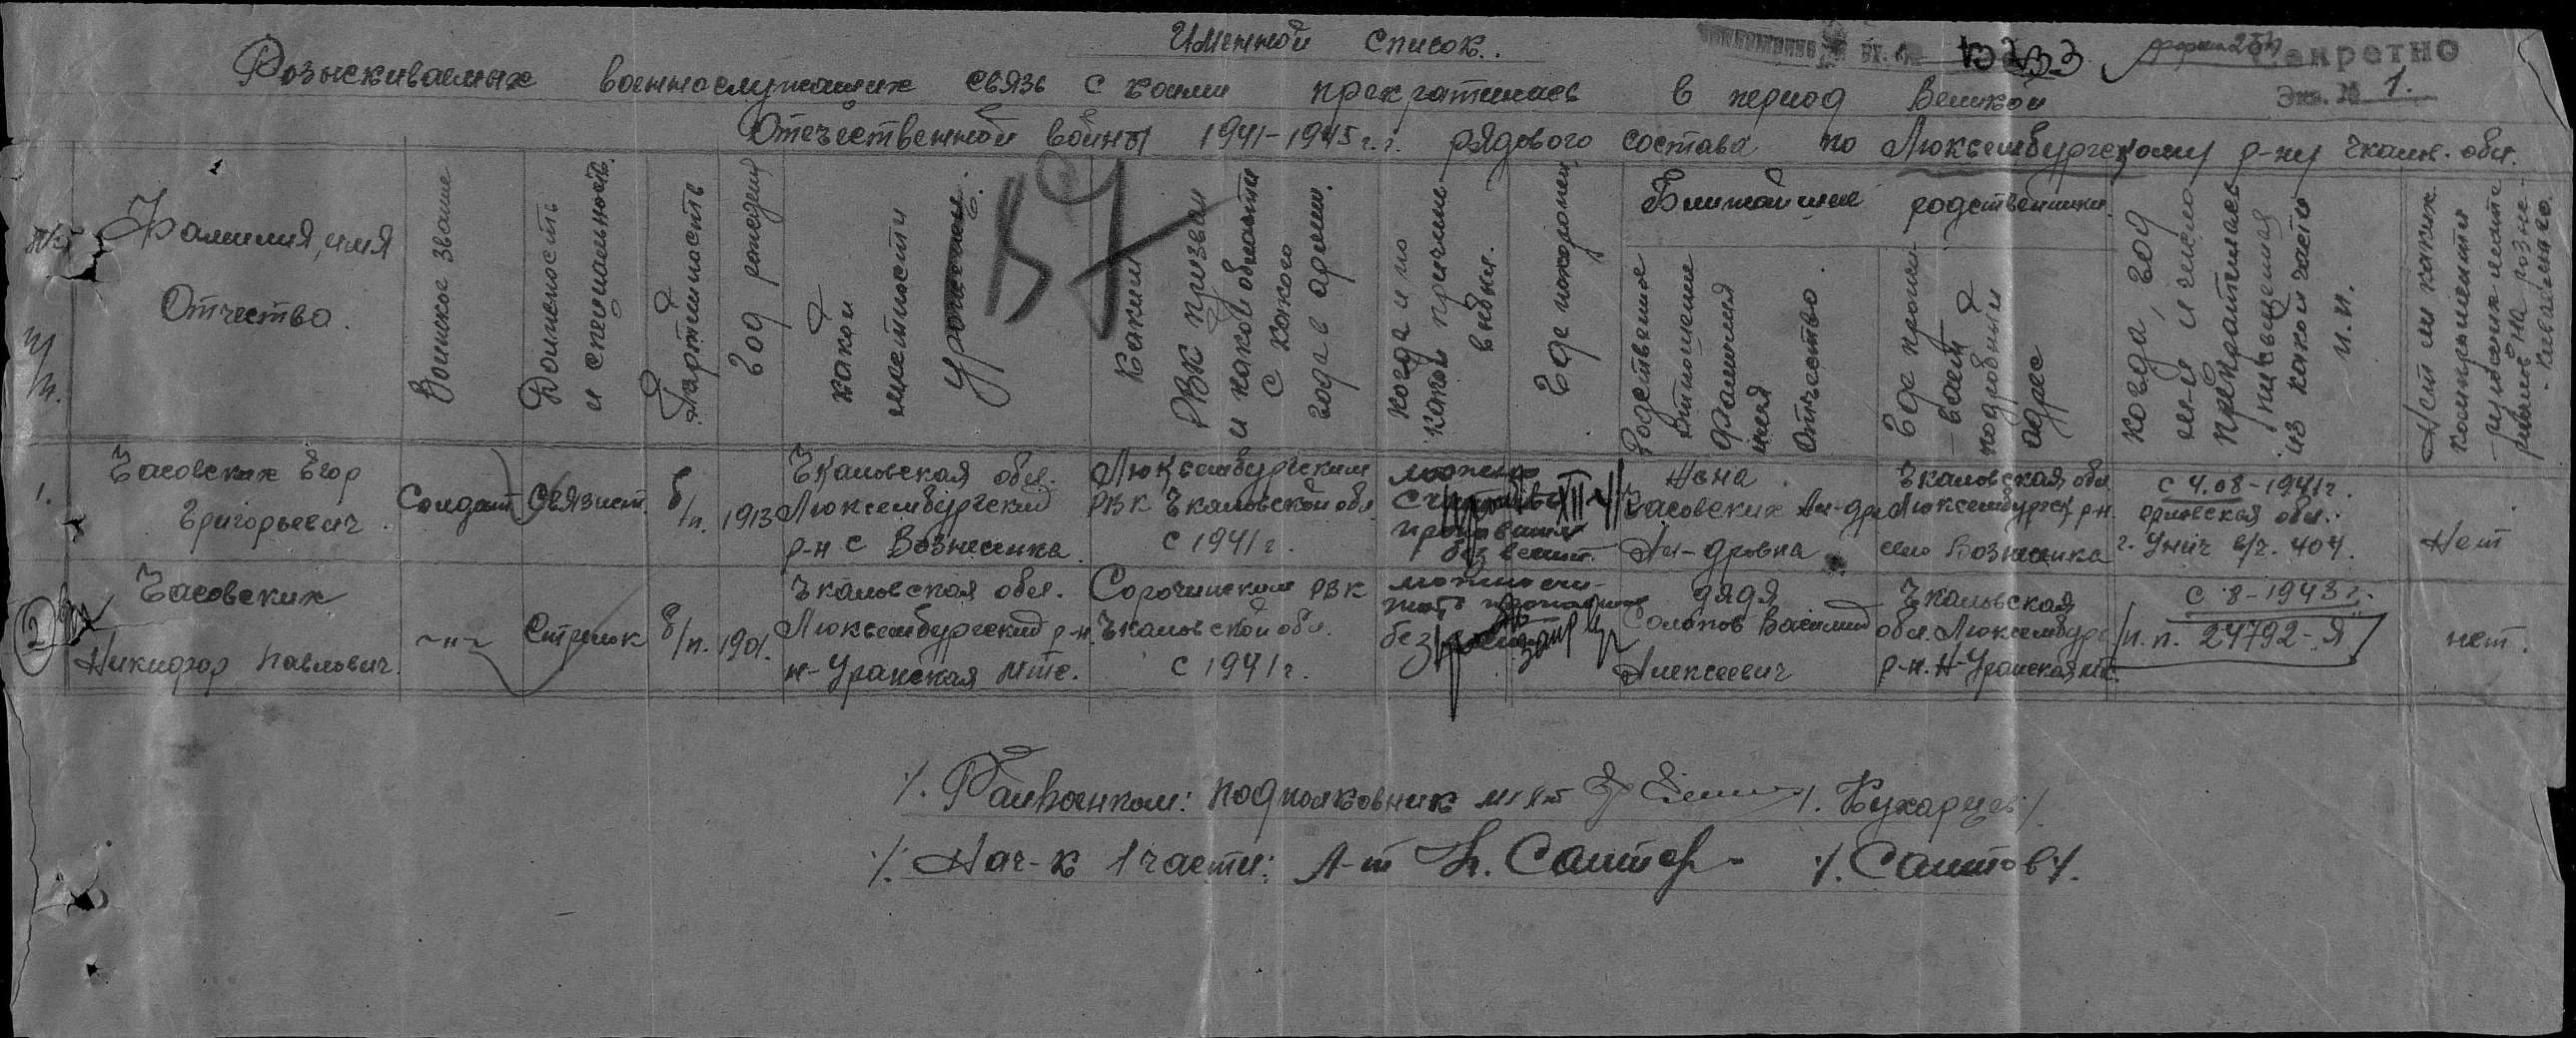 Именной список.
Секретно
Экз. № 1.
Розыскиваемых военнослужащих связь с коими прекратилась в период Великой
Отечественной войны 1941-1945 г.г. рядового состава по Люксембургскому р-ну Чкал. обл.
Фамилия, имя
Отчество.
Воинское звание
Должность
и специальность.
Партийность
Год рождения
какой
местности
уроженец.
Каким
РВК призван
и какой области
с какого
года в армии.
когда и по
какой причине
выбыл.
Где похоронен
Ближайшие родственники
Родственные
отношения
фамилия
имя
отчество.
Где прожи-
вает
подробный
адрес
когда, год
м-ц и число
прекратилась
из какой части
п.п.
Нет ли каких
1.
Часовских Егор
Григорьевич.
Солдат
Связист.
б/п.
1913
Чкаловская обл.
Люксембургский
р-н с Вознесенка.
Люксембургским
РВК Чкаловской обл
с 1941 г.
можно
пропавшим
без вест.
Жена
Часовских Ал-дра
Ал-дровна
Чкаловская обл
Люксембургск р-н.
село Вознесенка
с 4.08-1941г.
орловская обл.
г. Унеч в/ч. 404.
Нет
2
Часовских
Никифор Павлович.
-"-
Стрелок
б/п.
1901.
Чкаловская обл.
Люксембургский р-н.
н-Уранская мтс.
Сорочинским РВК
Чкаловской обл.
с 1941 г.
можно счи-
тать пропавшим
без
дядя
Солопов Василий
Алексеевич
Чкаловская
обл. Люксембург
р-н. Н-Уранская мтс.
с 8-1943 г.
п.п. 24792-"Я"
нет.
/. Райвоенком: подполковник м/с /. Кухарцев/
/. Нач-к 1 части: Л-т /. Саитов/.